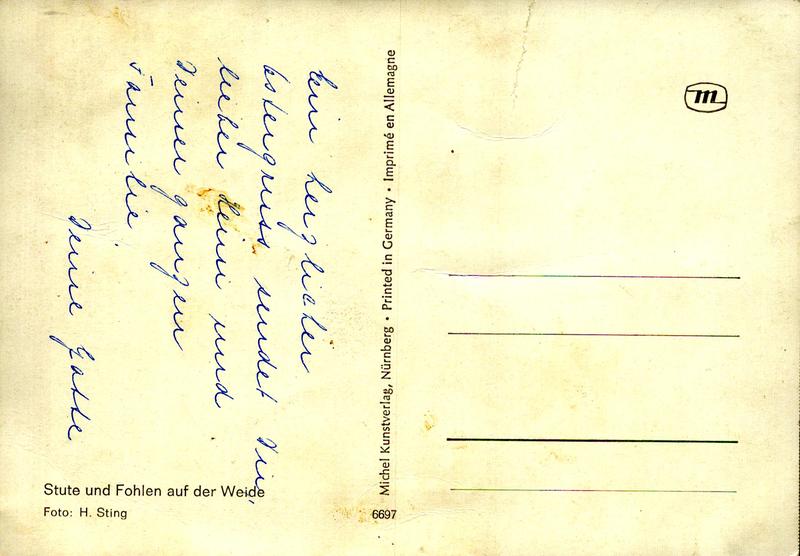 Ein herzlicher
Ostergruss sendet Dir,
lieber Heini und
Deiner ganzen
Familie,
Deine Gotte
Stute und Fohlen auf der Weide
Foto: H. Sting
6697
Michel Kunstverlag, Nürnberg • Printed in Germany • Imprimé en Allemagne
m